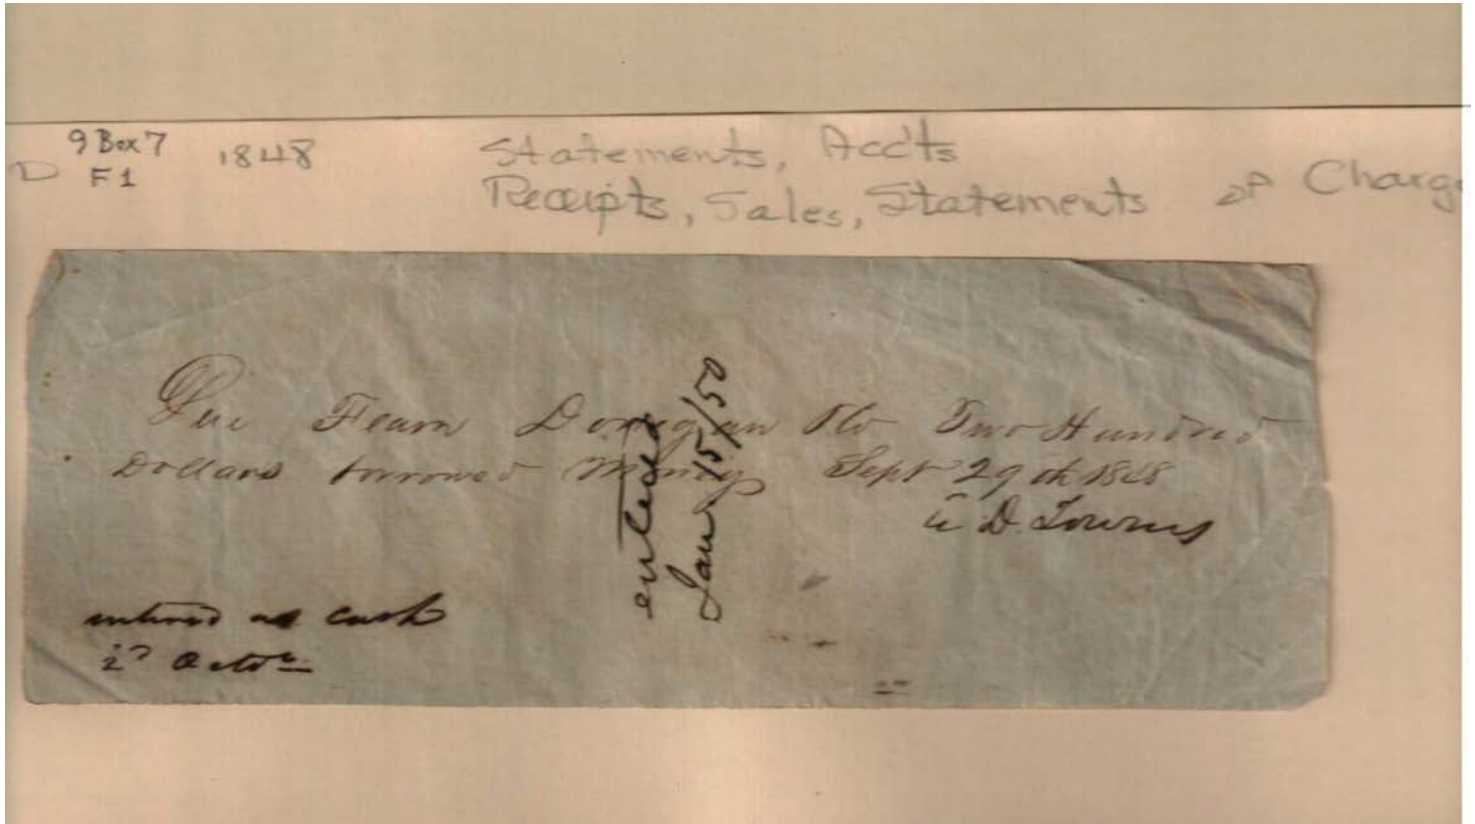 9 Box 7
D F1
1848
Statements, Acc'ts
Receipts, Sales, Statements of Charg
Due Fearn Donegan & Co Two Hundred
Dollars borrowed Money Sept 29th 1848
D. Townes
entered
Jan 15/50
entered as cash
2d Octor